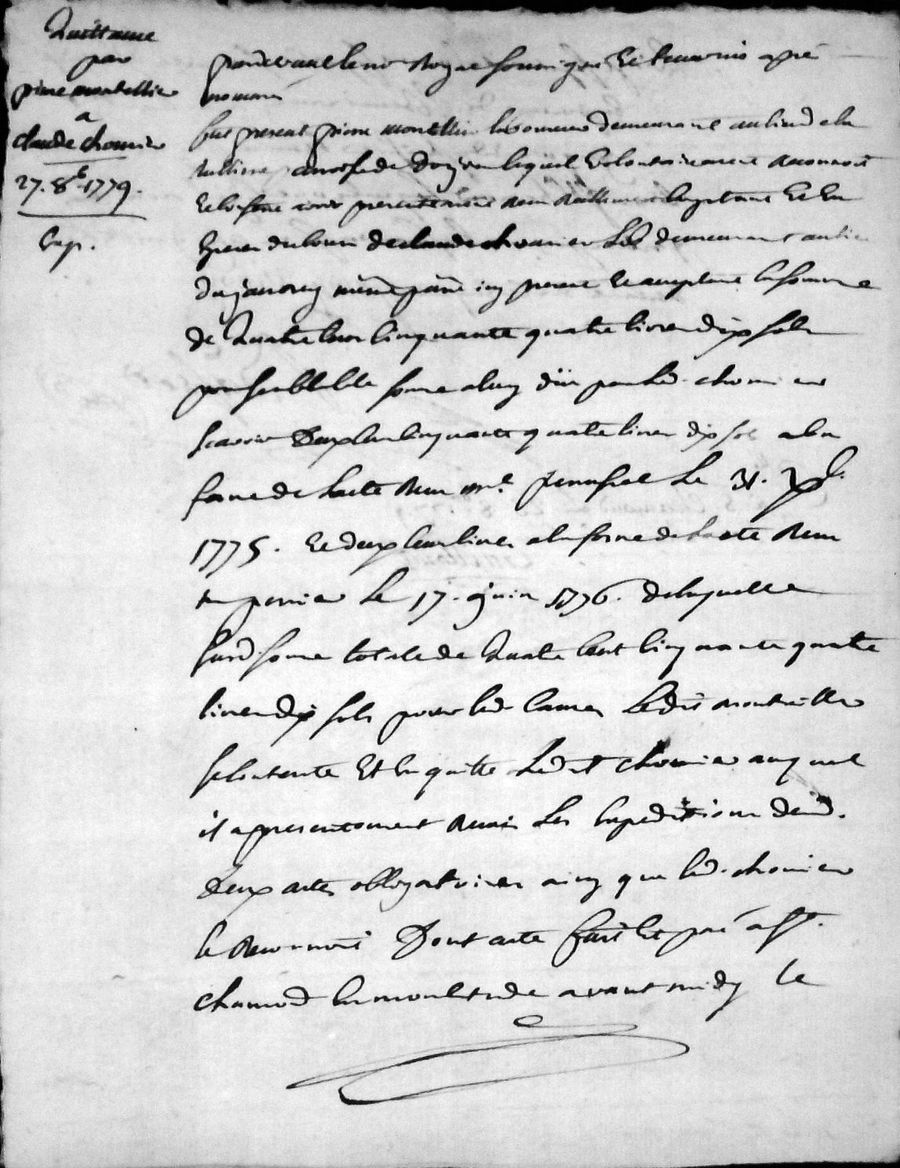 Quittance
par
pierre montellier
a
claude chomier
27. 8.e 1779.
Exp.
pardevant le no.re Royal soussigné Et temoins apré
nommés
fut present pierre montellier laboureur demeurant au lieu de la
paroisse de lequel volontairement a reconnu
Et confessé avoir presentement Receu Reellement Comptant Et En
Especes du cours de claude chomier Lab. demeurant au lieu
du janorey même par.sse icy present Et acceptant la somme
de Quatre cent Cinquante quatre livres dix sols
pour semblable somme a luy düe par led. chomier
scavoir Deux cent cinquante quatre livres dix sols a la
forme de l'acte Receu m.e Le 31. X.bre
1775. Et deux cent livres a la forme de l'acte Receu
Le 17. juin 1776. de laquelle
susd. somme totale de Quatre Cent Cinquante quatre
livres dix sols pour les d. causes Ledit montellier
se contente Et En quitte Ledit chomier auquel
il a presentement Remis Les Expeditions desd.
deux actes obligatoires ainsy que led. chomier
le Reconnoit Dont acte fait Et passé a S.t
chamond En nostre Etude avant midy le